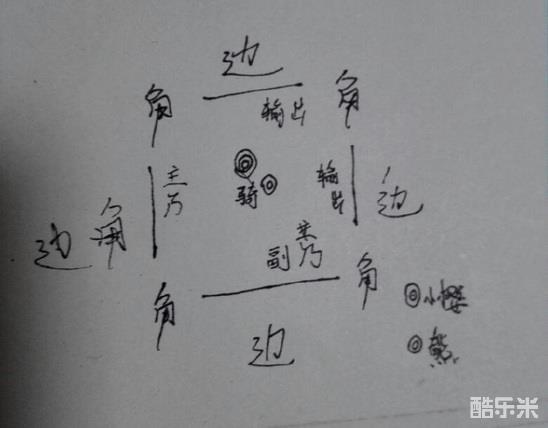 边
角
角
输出
主
乃
骑
输
出
边
边
角
副
主
乃
角
角
边
小樱
熊
酷乐米